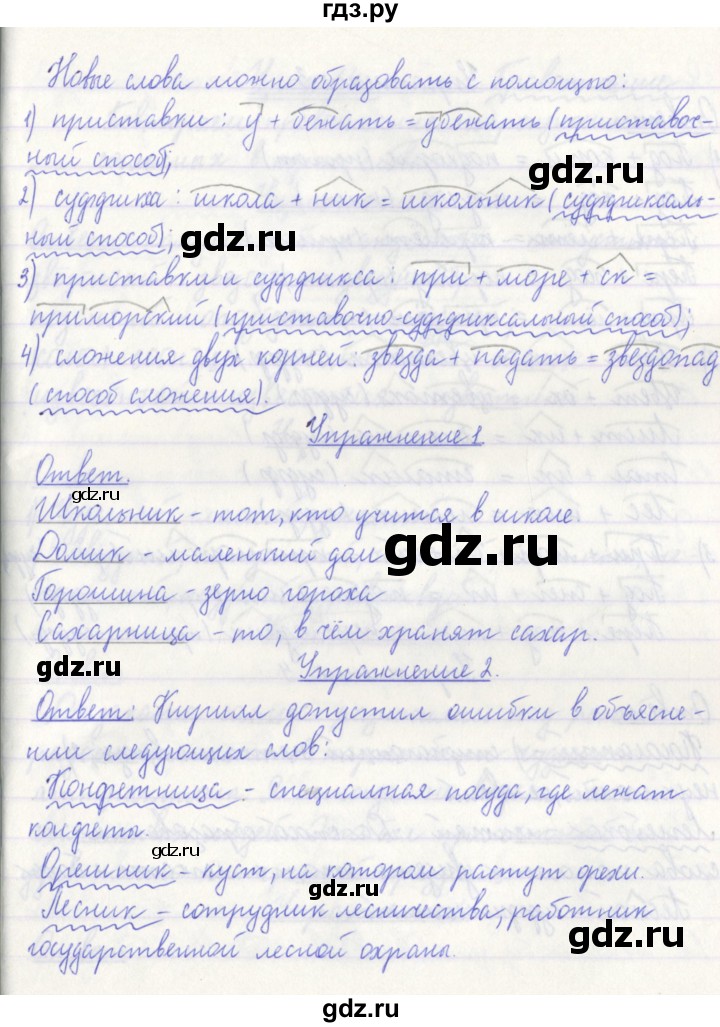 гдз.ру
Новые слова можно образовать с помощью:
1) приставки: у + бежать = убежать (приставоч-
ный способ);
2) суффикса: школа + ник = школьник (суффиксаль-
ный способ);
3) приставки и суффикса: при + море + ск =
приморский (приставочно-суффиксальный способ);
4) сложения двух корней: звезда + падать = звездопад
(способ сложения).
gdz.ru
gdz.ru
gdz.ru
Упражнение 1
Ответ.
gdz.ru
Школьник - тот, кто учится в школе.
Домик - маленький дом
gdz.ru
Горошина - зерно гороха
Сахарница - то, в чём хранят сахар.
gdz.ru
Упражнение 2.
Ответ: Кирилл допустил ошибки в объясне-
нии следующих слов:
Конфетница - специальная посуда, где лежат
конфеты.
gdz.ru
Орешник - куст, на котором растут орехи.
gdz.ru
Лесник - сотрудник лесничества, работник
gdz.ru
государственной лесной охраны.
gdz.ru